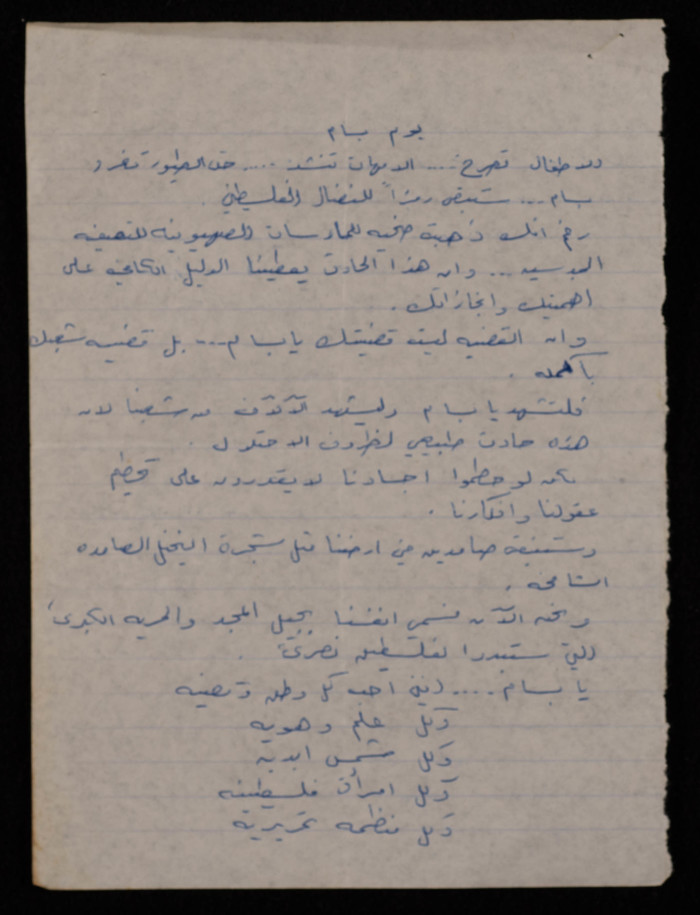 يوم بسام
الاطفال تصرخ .... الامهات تنشد .... حتى الطيور تغرد
بسام ... ستبقى رمزاً للنضال الفلسطيني .
رغم انك ذهبت ضحيه للمارسات الصهيونيه التعسفيه
... وان هذا الحادث يعطينا الدليل الكافي على
اهميتك وانجازاتك .
وان القضيه ليت قضيتك يا بسام ... بل قضيه شعبك
بأكمله .
فلتشهد يا بسام وليشهد الآلاف من شعبنا لان
هذه حادث طبيعي لظروف الاحتلال .
لو حطموا اجسادنا لا يقدرون على تحطيم
عقولنا وافكارنا .
وسنبقى صامدين في ارضنا مثل شجرة النخل الصامده
الشامخه .
ونحن الآن نسمي انفسنا بجيل المجد والحريه الكبرى
التي لفلسطين .
يا بسام .... انني احب كل وطن وقضيه
وكل علم وهويه
وكل شمس ابديه
وكل امرأة فلسطينيه
وكل منظمه تحريرية